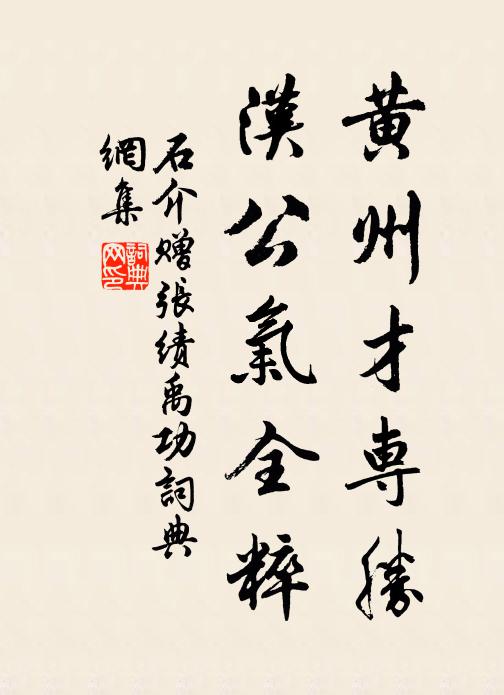 黄州才専勝
漢公氣全粹
石介赠張績禹功詞典
網集
詞典網印